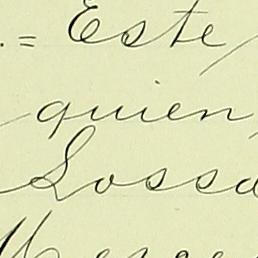 .= Este
quien
Lossa